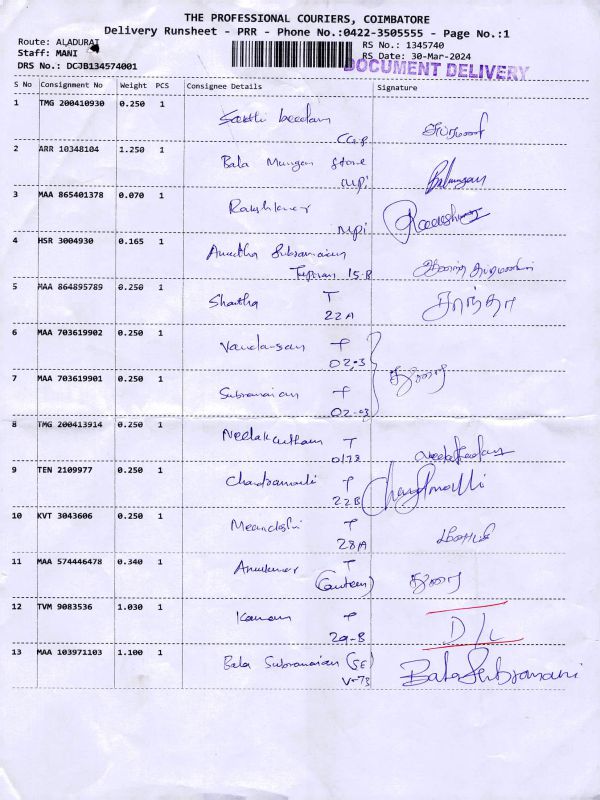 THE PROFESSIONAL COURIERS, COIMBATORE
Delivery Runsheet - PRR - Phone No.:0422-3505555 - Page No.:1
Route: ALADURAI
Staff: MANI
DRS No.: DCJB134574001
RS No.: 1345740
RS Date: 30-Mar-2024
DOCUMENT DELIVERY
S No Consignment No Weight PCS Consignee Details Signature
1 TMG 200410930 0.250 1
2 ARR 10348104 1.250 1 Bala Murugan Store
Balamurugan
3 MAA 865401378 0.070 1
4 HSR 3004930 0.165 1
15-B
5 MAA 864895789 0.250 1 Shantha T சாந்தா
22A
6 MAA 703619902 0.250 1
02-3
7 MAA 703619901 0.250 1 Subramanian T
02-03
8 TMG 200413914 0.250 1 Neelakantham T
9 TEN 2109977 0.250 1 Chandramouli T Chandramoulli
22B
10 KVT 3043606 0.250 1 Meenakshi T
28A
11 MAA 574446478 0.340 1 T
(Canteen)
12 TVM 9083536 1.030 1 T D/L
29-B
13 MAA 103971103 1.100 1 Bala Subramanian (SE) BalaSubramani
V-73